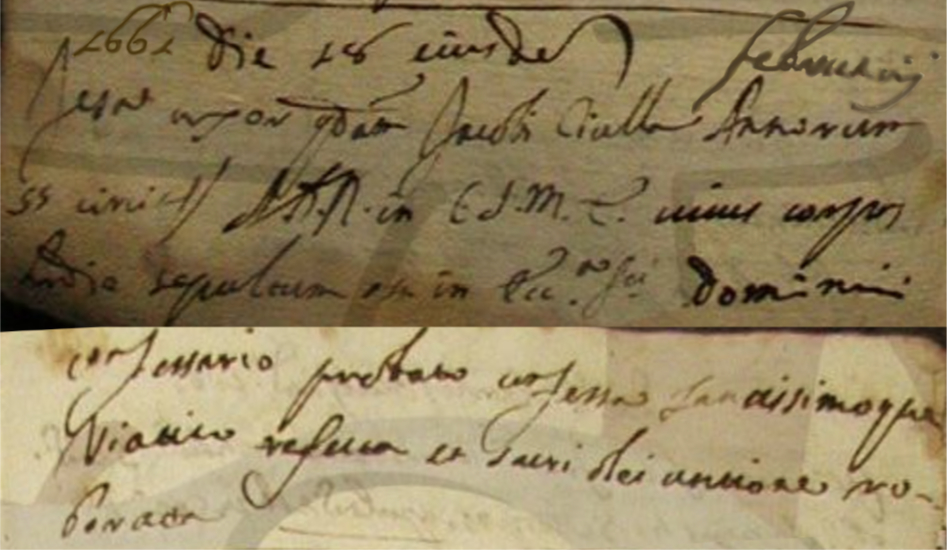 1667 Die 28 eiusde
februarij
uxor qdam Jacobi Ciulla Annorum
55 in C.S.M.E. cuius corpus
hodie sepultum est in Ecc. Sti Dominici
confessario probato confessa sanctissimoque
Viatico refecta et sacri olei unctione ro-
borata